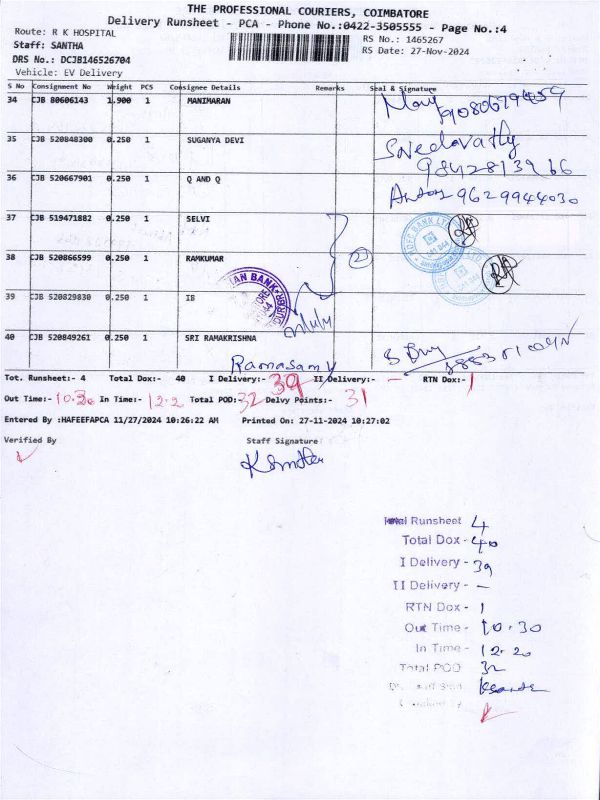 THE PROFESSIONAL COURIERS, COIMBATORE
Delivery Runsheet - PCA - Phone No.:0422-3505555 - Page No.:4
Route: R K HOSPITAL
RS No.: 1465267
Staff: SANTHA
RS Date: 27-Nov-2024
DRS No.: DCJB146526704
Vehicle: EV Delivery
S No Consignment No Weight PCS Consignee Details Remarks Seal & Signature
34 CJB 80606143 1.900 1 MANIMARAN
35 CJB 520848300 0.250 1 SUGANYA DEVI
36 CJB 520667901 0.250 1 Q AND Q 9629944030
37 CJB 519471882 0.250 1 SELVI
38 CJB 520866599 0.250 1 RAMKUMAR
39 CJB 520829830 0.250 1 IB
40 CJB 520849261 0.250 1 SRI RAMAKRISHNA
Ramasamy
Tot. Runsheet:- 4 Total Dox:- 40 I Delivery:- 39 II Delivery:- - RTN Dox:- 1
Out Time:- 10.30 In Time:- 12.2 Total POD:- 32 Delvy Points:- 31
Entered By :HAFEEFAPCA 11/27/2024 10:26:22 AM Printed On: 27-11-2024 10:27:02
Verified By Staff Signature
Total Runsheet 4
Total Dox - 40
I Delivery - 39
II Delivery - -
RTN Dox - 1
Out Time - 10.30
In Time - 12.20
Total POD 32